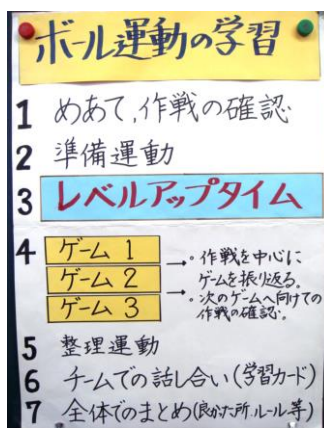 ボール運動の学習
1 めあて,作戦の確認
2 準備運動
3 レベルアップタイム
4 ゲーム 1
ゲーム 2
ゲーム 3
→。作戦を中心に
ゲームを振り返る。
→。次のゲームへ向けての
作戦の確認。
5 整理運動
6 チームでの話し合い(学習カード)
7 全体でのまとめ(良かった所,ルール等)